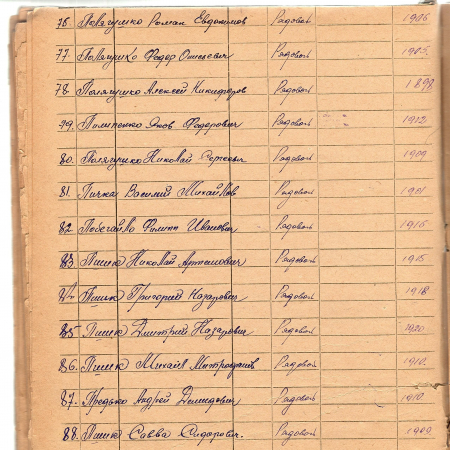 76. Полягушко Роман Евдокимов Рядовой 1906
77. Полягушко Федор Рядовой 1905
78. Полягушко Алексей Никифоров Рядовой 1898
79. Пилипенко Яков Федорович Рядовой 1912
80. Полягушко Николай Сергеевич Рядовой 1909
81. Пичка Василий Михайлов Рядовой 1901
82. Побегайло Филипп Иванович Рядовой 1916
83. Пишек Николай Артемович Рядовой 1915
84. Пишек Григорий Назарович Рядовой 1918
85 Пишек Дмитрий Назарович Рядовой 1920
86. Пишек Михаил Митрофанов Рядовой 1910.
87. Предько Андрей Демидович Рядовой 1910.
88. Пишек Савва Сидорович. Рядовой 1909